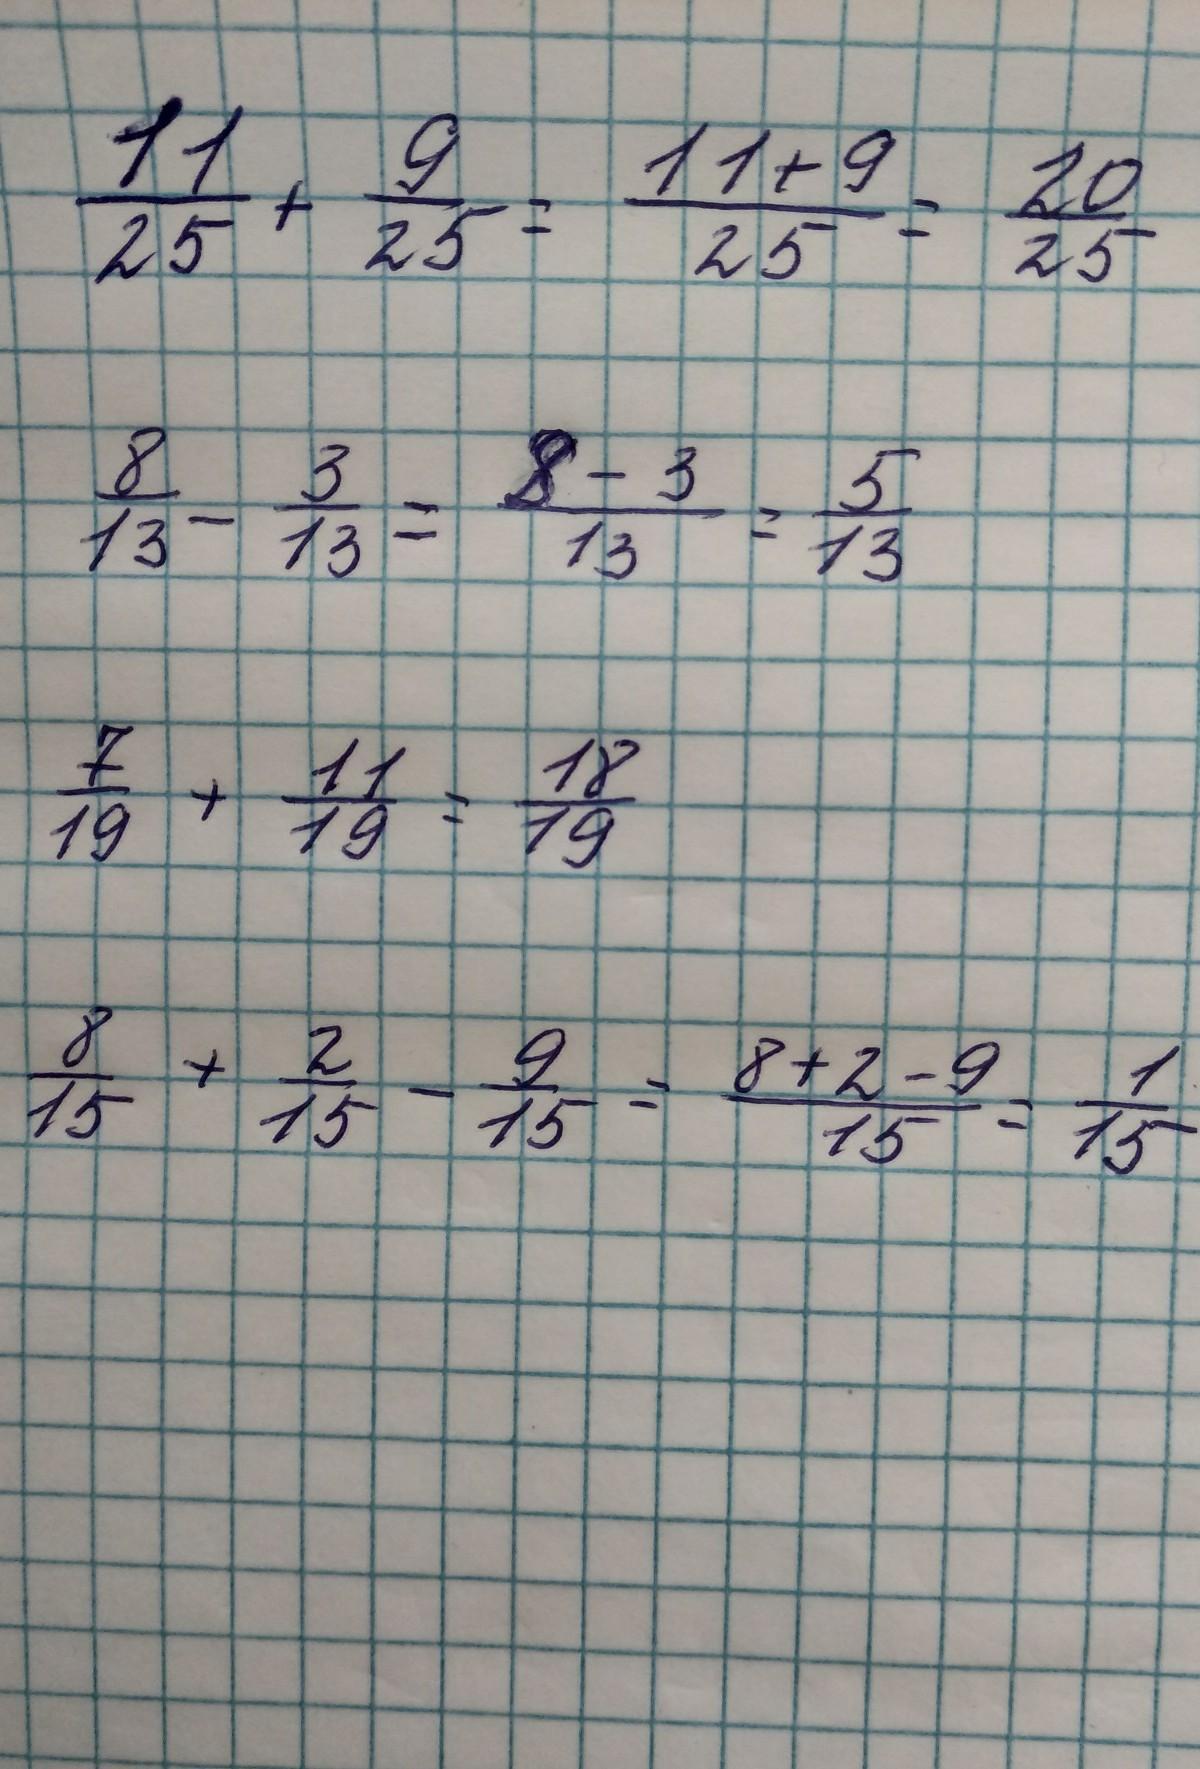 11/25 + 9/25 = 11+9/25 = 20/25
8/13 - 3/13 = 8-3/13 = 5/13
7/19 + 11/19 = 18/19
8/15 + 2/15 - 9/15 = 8+2-9/15 = 1/15